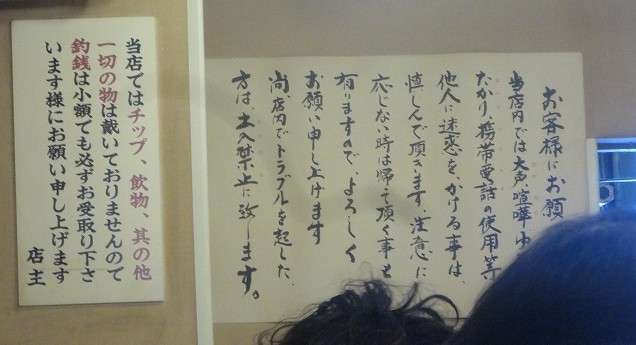 お客様にお願
当店内では大声、喧嘩、
たかり、携帯電話の使用等
他人に迷惑を、かける事は、
慎しんで頂きます、注意に
応じない時は帰って頂く事も
有りますので、よろしく
お願い申し上げます
尚、店内でトラブルを起した、
方は、立入禁止に致します。
当店ではチップ、飲物、其の他
一切の物は戴いておりませんので
釣銭は小額でも必ずお受取り下さ
います様にお願い申し上げます
店主